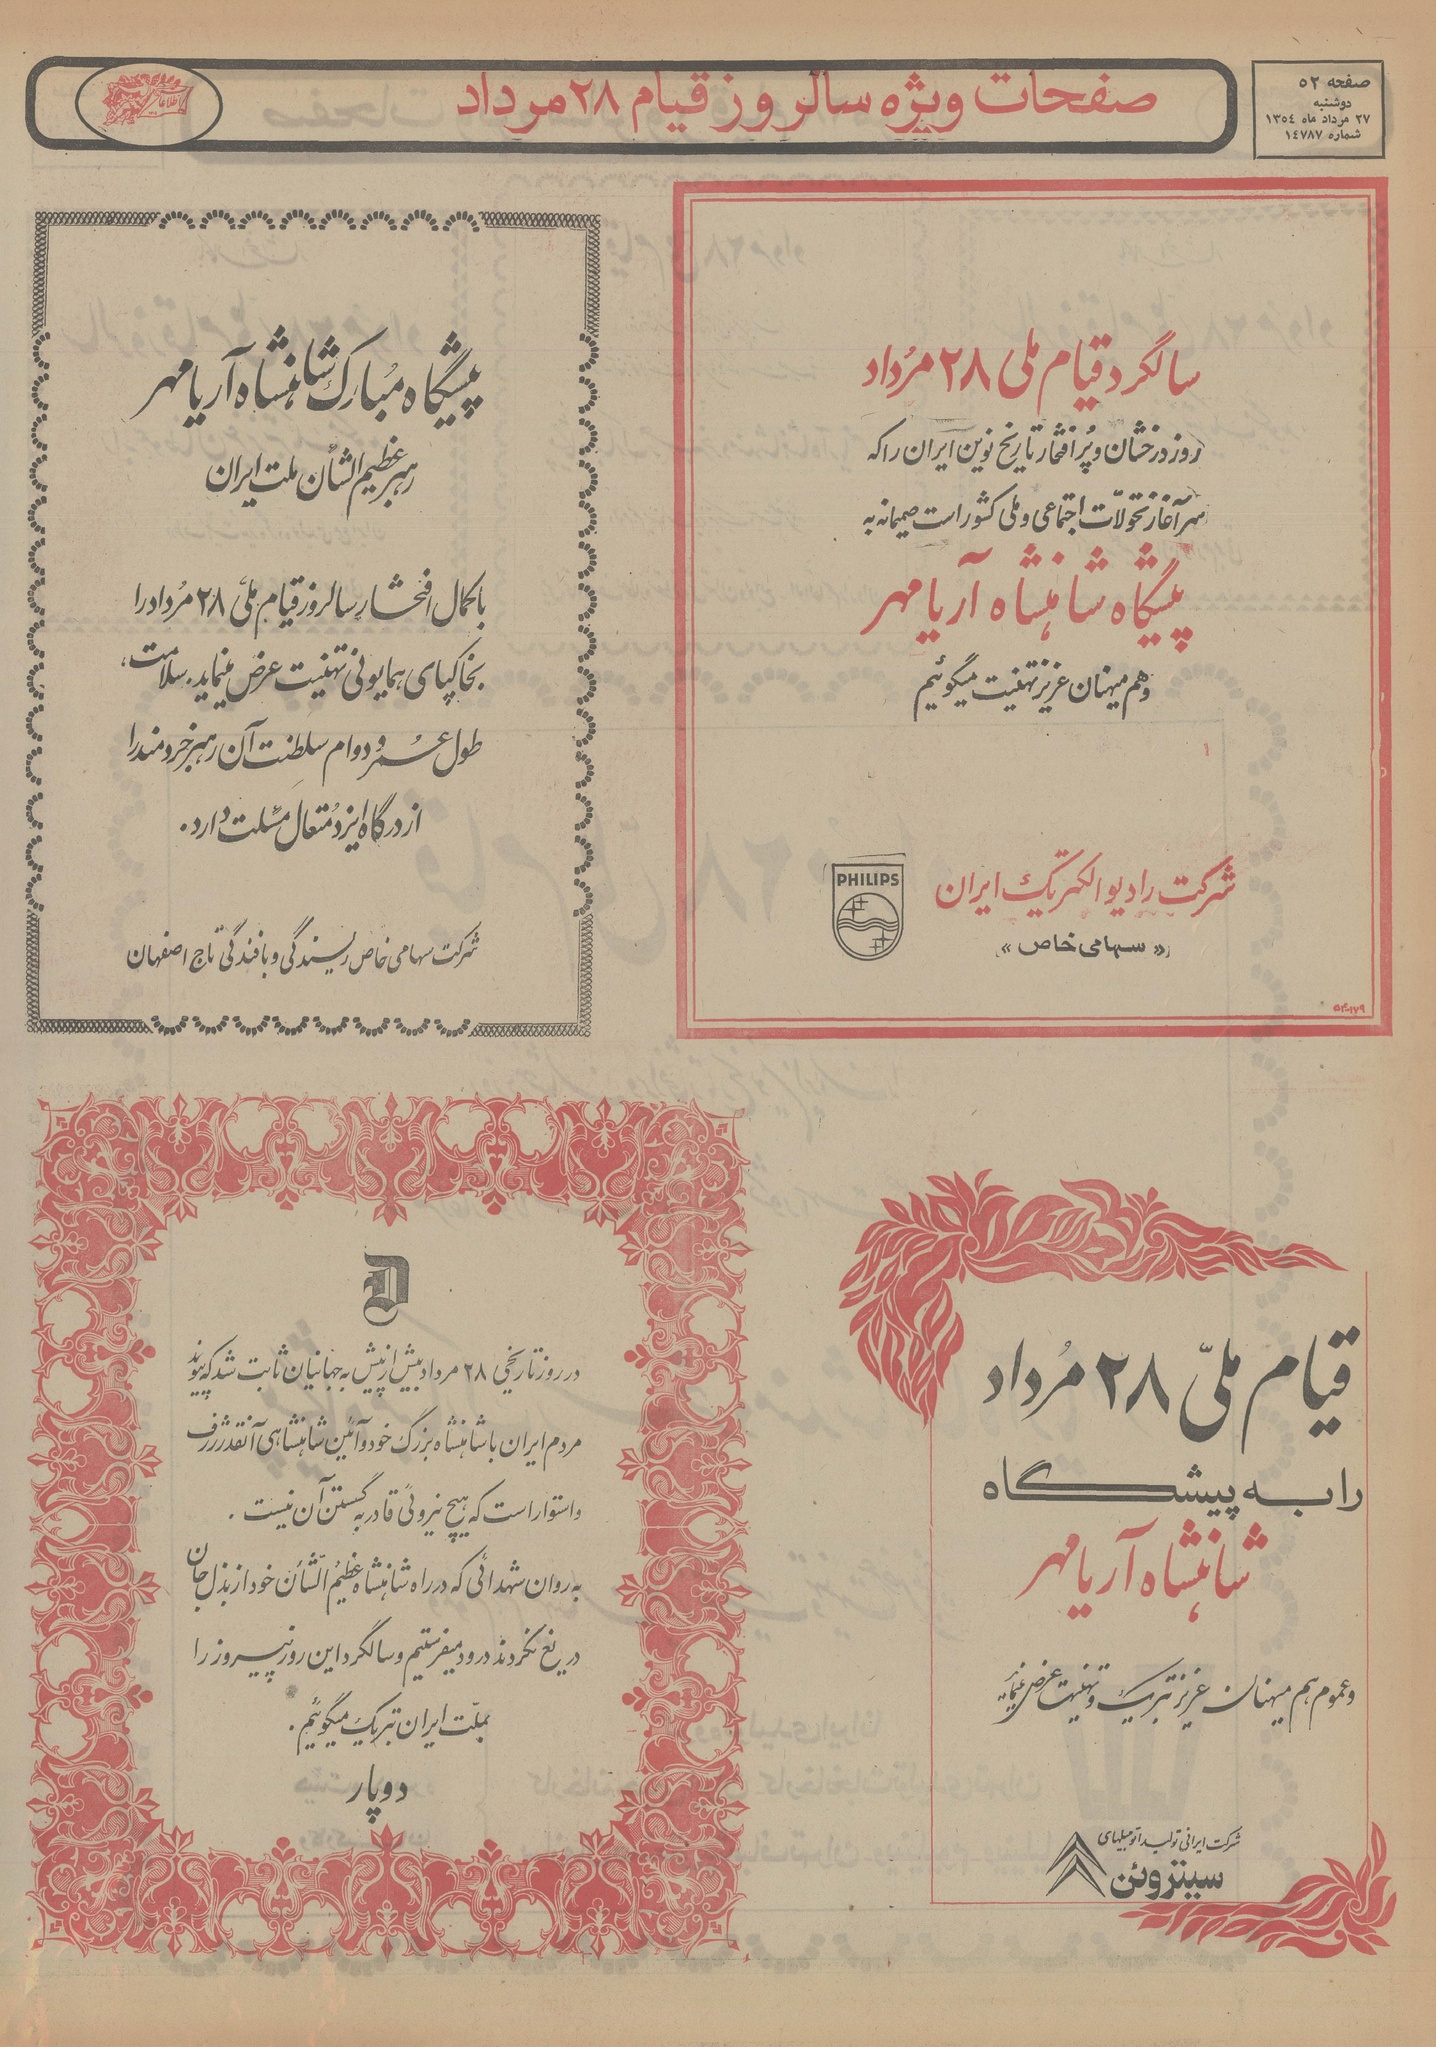 صفحه ۵۲
دوشنبه
۲۷ مرداد ماه ۱۳۵۴
شماره ۱۴۷۸۷
صفحات ویژه سالروز قیام ۲۸ مرداد
اطلاعات
سالگرد قیام ملی ۲۸ مُرداد
روز درخشان و پُر افتخار تاریخ نوین ایران را که
سرآغاز تحولات اجتماعی و ملی کشور است صمیمانه به
پیشگاه شاهنشاه آریامهر
و هم میهنان عزیز تهنیت میگوئیم
شرکت رادیو الکتریک ایران
«سهامی خاص»
PHILIPS
پیشگاه مُبارک شاهنشاه آریامهر
رهبر عظیم الشأن ملت ایران
با کمال افتخار سالروز قیام ملی ۲۸ مُرداد را
بخاکپای همایونی تهنیت عرض مینماید. سلامت،
طول عُمر و دوام سلطنت آن رهبر خردمند را
از درگاه ایزد مُتعال مسئلت دارد.
شرکت سهامی خاص ریسندگی و بافندگی تاج اصفهان
قیام ملّی ۲۸ مُرداد
را به پیشگاه
شاهنشاه آریامهر
و عموم هم میهنان عزیز تبریک و تهنیت عرض مینماید
شرکت ایرانی تولید اتومبیلهای
سیتروئن
D
در روز تاریخی ۲۸ مرداد بیش از پیش به جهانیان ثابت شد که پیوند
مردم ایران با شاهنشاه بزرگ خود و آئین شاهنشاهی آنقدر ژرف
و استوار است که هیچ نیروئی قادر به گسستن آن نیست.
به روان شهدائی که در راه شاهنشاه عظیمُ الشّأن خود از بذل جان
دریغ نکردند درود میفرستیم و سالگرد این روز پیروز را
بملّت ایران تبریک میگوئیم.
دوپار